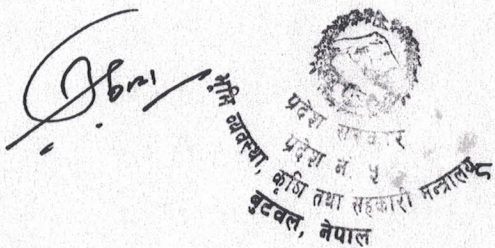 प्रदेश सरकार
प्रदेश न. ५
भूमि व्यवस्था, कृषि तथा सहकारी मन्त्रालय
बुटवल, नेपाल